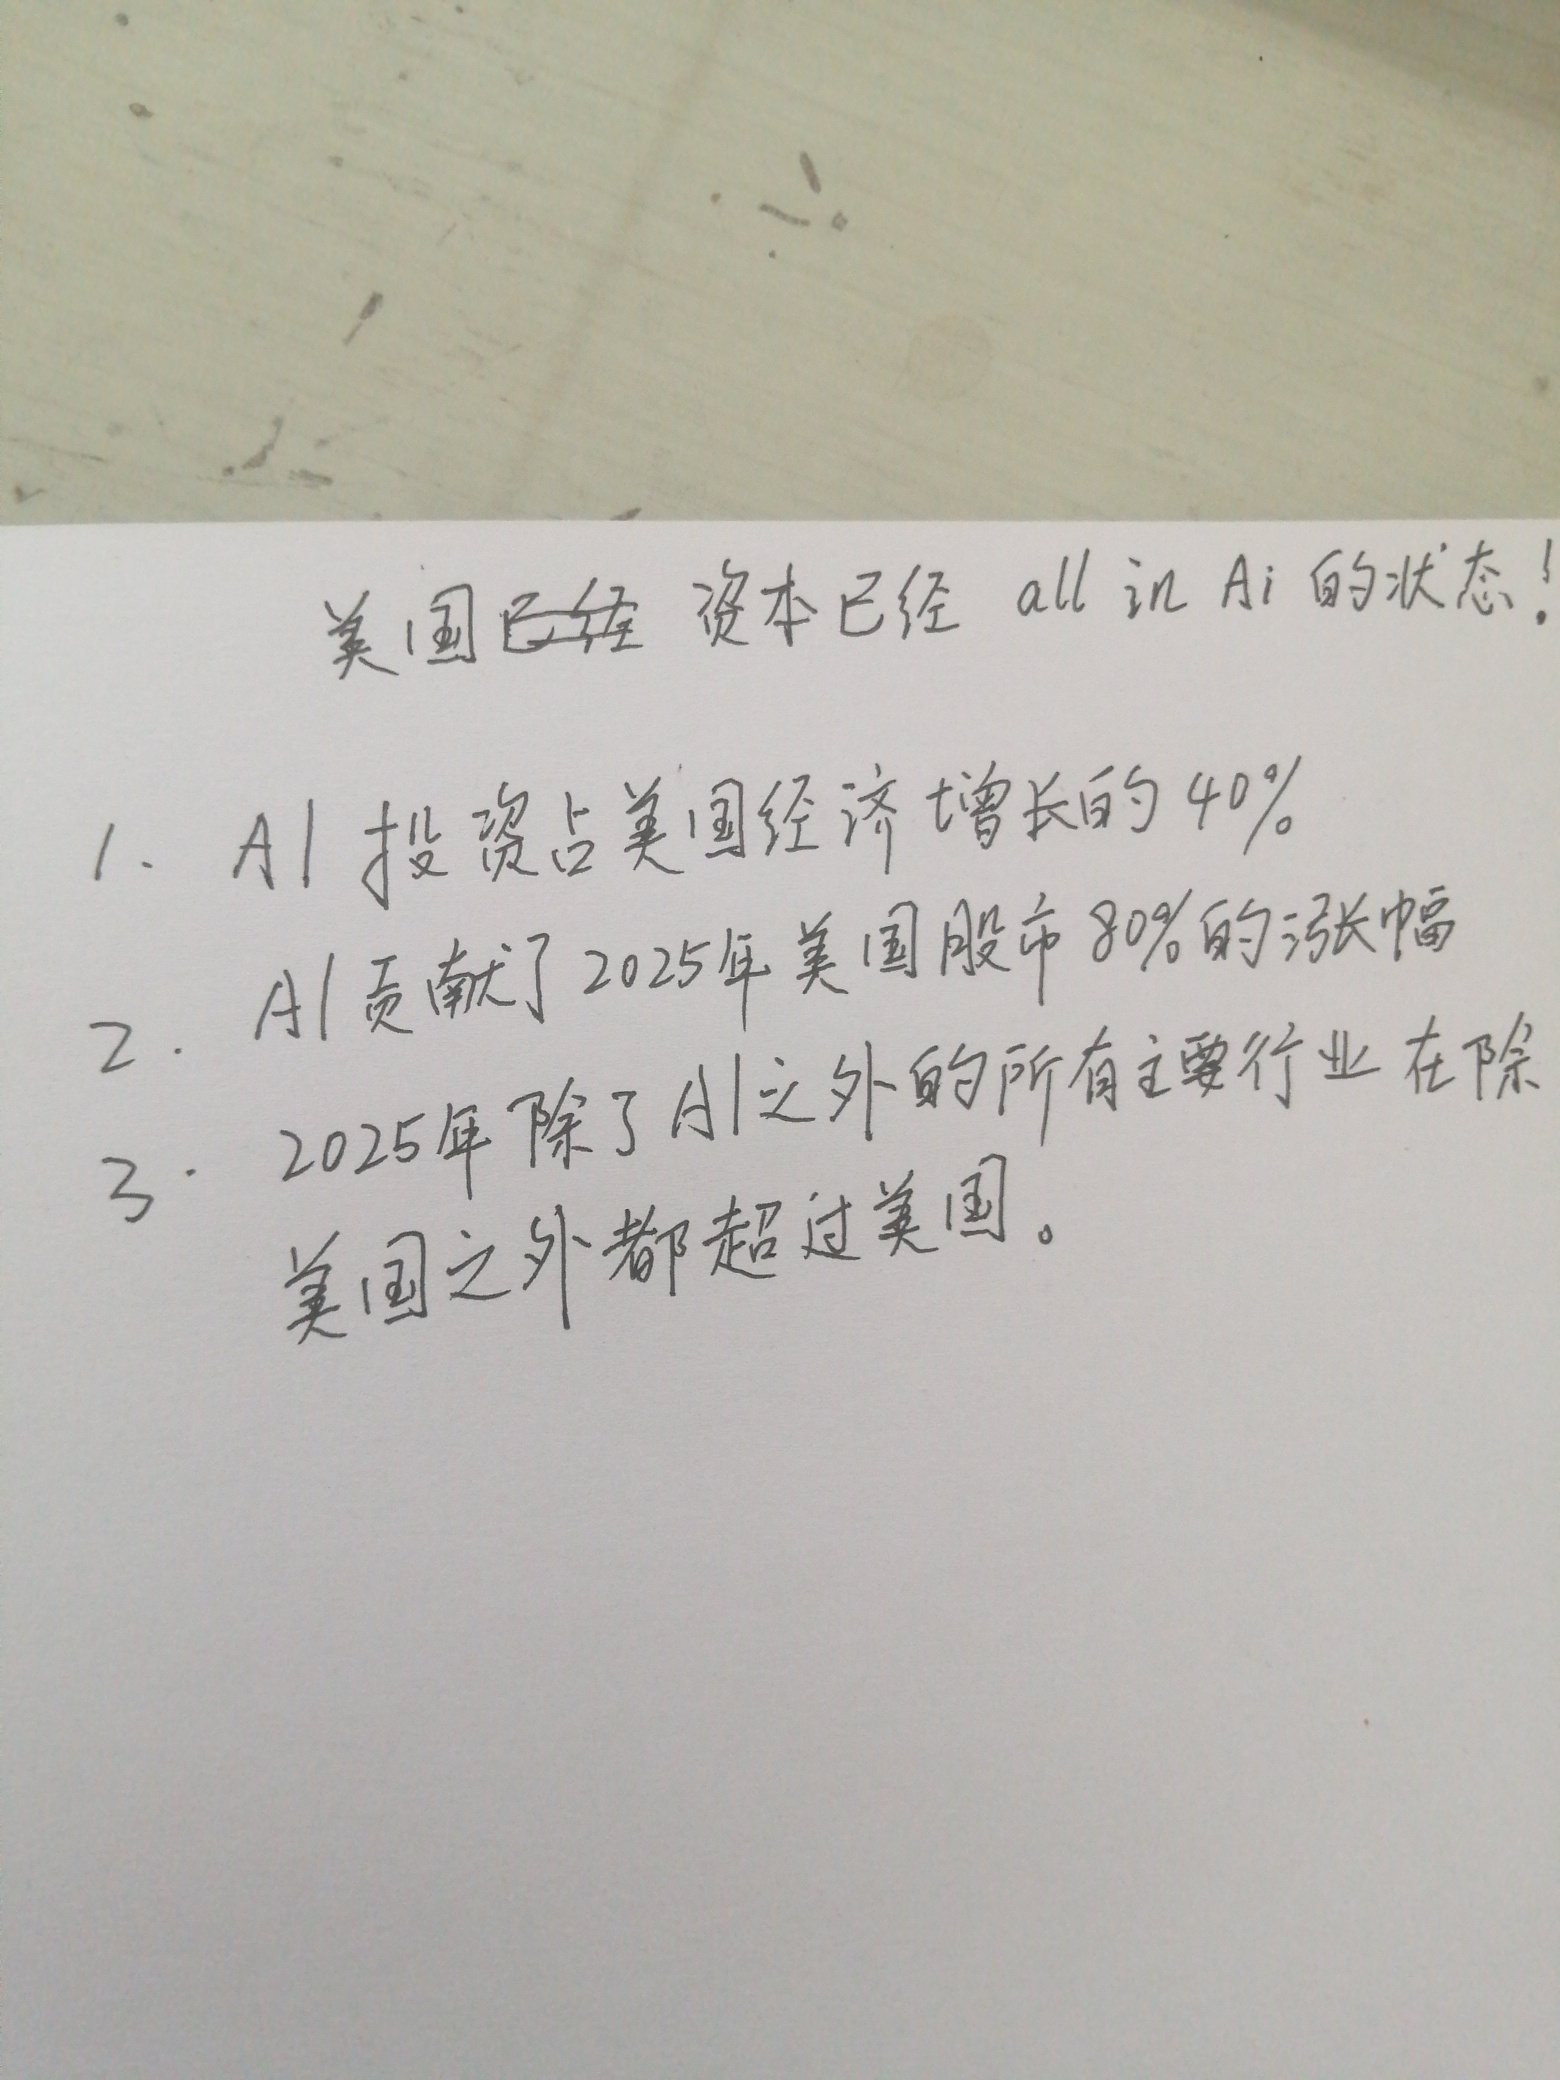 美国已经 资本已经 all in Ai 的状态!
1. AI 投资占美国经济增长的40%
2. AI贡献了2025年美国股市80%的涨幅
3. 2025年除了AI之外的所有主要行业在除
美国之外都超过美国。